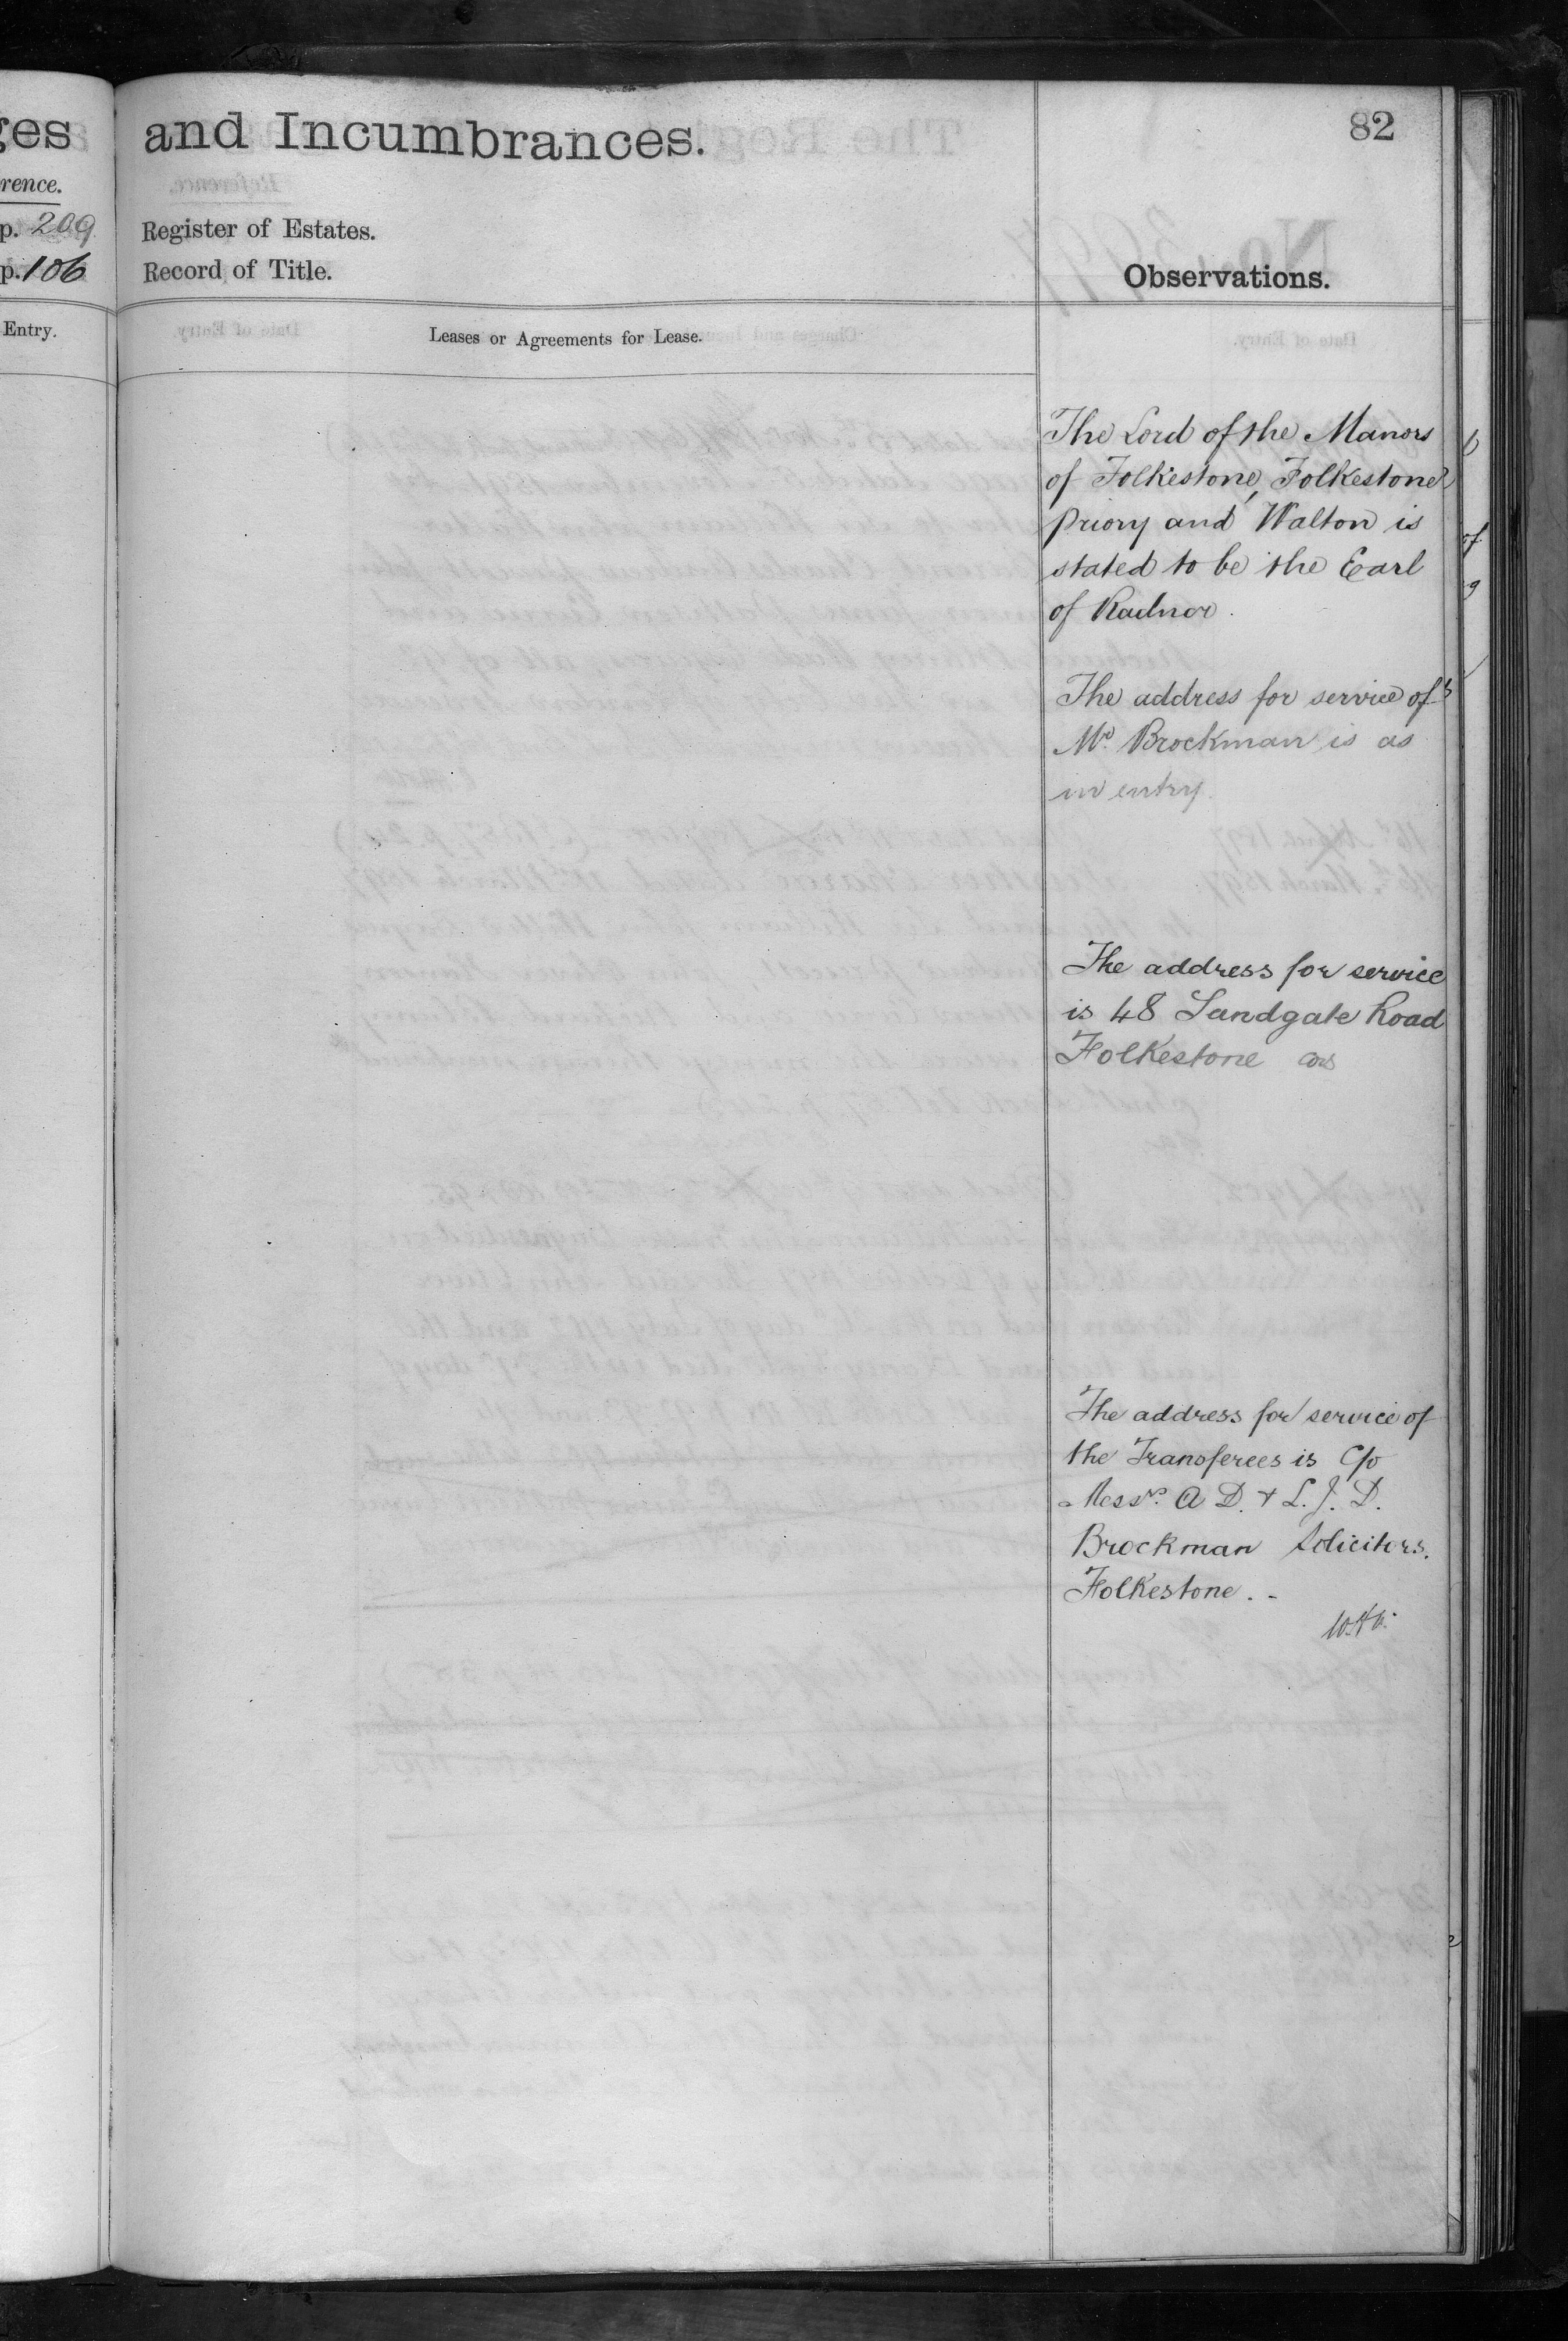 ges
rence.
p. 209
p. 106
Entry.
and Incumbrances.
Register of Estates.
Record of Title.
Leases or Agreements for Lease.
82
Observations.
The Lord of the Manors
of Folkestone, Folkestone
Priory and Walton is
stated to be the Earl
of Radnor.
The address for service of
Mr. Brockman is as
in entry.
The address for service
is 48 Sandgate Road
Folkestone
The address for service of
the Transferees is C/o
Messrs. A D. + L. J. D.
Brockman Solicitors.
Folkestone. -